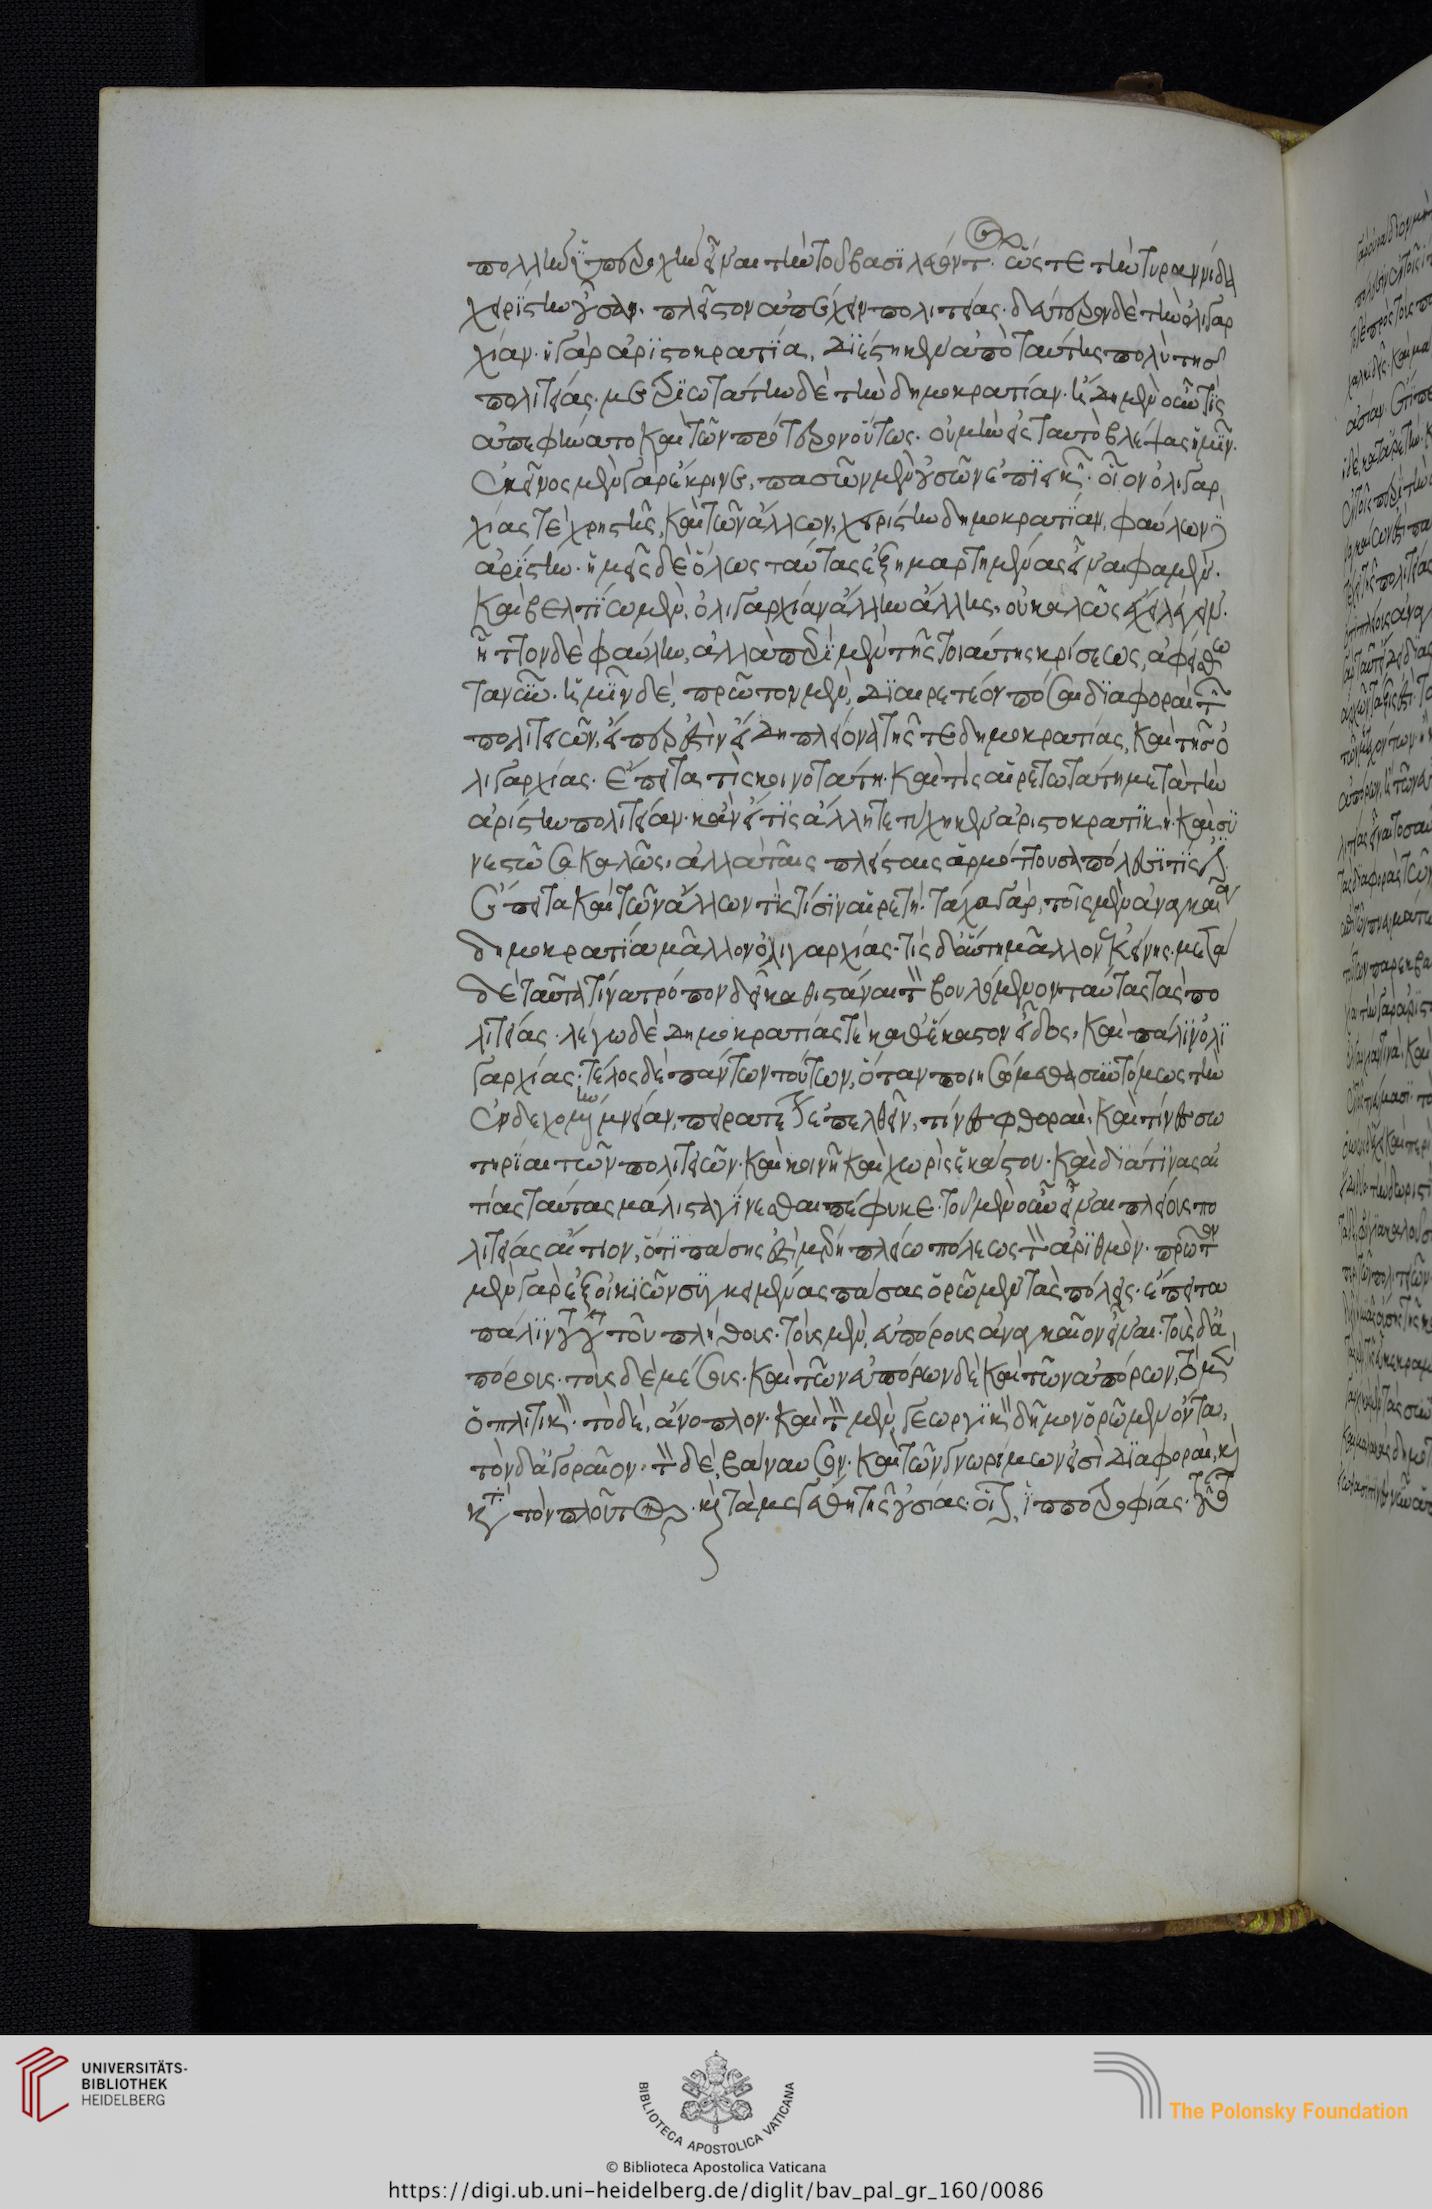 πολλὴν ὑπεροχὴν εἶναι τὴν τοῦ βασιλεύοντος. ὥστε τὴν τυραννίδα
χειρίστην οὖσαν. πλεῖστον ἀπέχειν πολιτείας. δεύτερον δὲ τὴν ὀλιγαρ
χίαν. ἡ γὰρ ἀριστοκρατία, διέστηκεν ἀπὸ ταύτης πολὺ τῆς
πολιτείας. μετριωτάτην δὲ τὴν δημοκρατίαν. ἤδη μὲν οὖν τὶς
ἀπεφήνατο καὶ τῶν πρότερον οὕτως. οὐ μὴν εἰς ταυτὸ βλέψας ἡμῖν.
ἐκεῖνος μὲν γὰρ ἔκρινε, πασῶν μὲν οὐσῶν ἐπιεικῶν. οἷον ὀλιγαρ
χίας τὲ χρηστῆς, καὶ τῶν ἄλλων, χειρίστην δημοκρατίαν, φαύλων δὲ
ἀρίστην. ἡμεῖς δὲ ὅλως ταύτας ἐξημαρτημένας εἶναι φαμέν.
καὶ βελτίω μὲν, ὀλιγαρχίαν ἄλλην ἄλλης, οὐ καλῶς ἔχει λέγειν.
ἧττον δὲ φαύλην, ἀλλὰ περὶ μὲν τῆς τοιαύτης κρίσεως, ἀφείσθω
τανῦν. ἡμῖν δὲ, πρῶτον μὲν, διαιρετέον πόσαι διαφοραὶ τῶν
πολιτειῶν, εἴπερ ἐστὶν εἴδη πλείονα τῆς τε δημοκρατίας, καὶ τῆς ὀ
λιγαρχίας. ἔπειτα τίς κοινοτάτη. καὶ τίς αἱρετωτάτη μετὰ τὴν
ἀρίστην πολιτείαν. κἂν εἴ τις ἄλλη τετύχηκεν ἀριστοκρατικὴ. καὶ συ
νεστῶσα καλῶς. ἀλλὰ ταῖς πλείσταις ἁρμόττουσα πόλεσι τίς ἐστιν
ἔπειτα καὶ τῶν ἄλλων τίς τίσιν αἱρετή. τάχα γὰρ, τοῖς μὲν ἀναγκαία
δημοκρατία μᾶλλον ὀλιγαρχίας. τίς δ' αὕτη μᾶλλον ἐκείνης. μετὰ
δὲ ταῦτα τίνα τρόπον δεῖ καθιστάναι τὸν βουλόμενον ταύτας τὰς πο
λιτείας. λέγω δὲ δημοκρατίας τὲ καθ' ἕκαστον εἶδος, καὶ πάλιν ὀλι
γαρχίας. τέλος δὲ πάντων τούτων, ὅταν ποιησώμεθα συντόμως τὴν
ἐνδεχομένην μνείαν, πειρατέον ἐπελθεῖν, τίνες φθοραὶ, καὶ τίνες σω
τηρίαι τῶν πολιτειῶν. καὶ κοινῇ καὶ χωρὶς ἑκάστου. καὶ διὰ τίνας αἰ
τίας ταύτας μάλιστα γίνεσθαι πέφυκε. τοῦ μὲν οὖν εἶναι πλείους πο
λιτείας αἴτιον, ὅτι πάσης ἐστὶ μέρη πλείω πόλεως τὸν ἀριθμὸν. πρῶτον
μὲν γὰρ ἐξ οἰκιῶν συγκειμένας πάσας ὁρῶμεν τὰς πόλεις. ἔπειτα
πάλιν τούτου τοῦ πλήθους. τοὺς μὲν, εὐπόρους ἀναγκαῖον εἶναι. τοὺς δ' ἀ
πόρους. τοὺς δὲ μέσους. καὶ τῶν εὐπόρων δὲ καὶ τῶν ἀπόρων, τὸ μὲν
ὁπλιτικὸν. τὸ δὲ, ἄνοπλον. καὶ τὸν μὲν, γεωργικὸν δῆμον ὁρῶμεν ὄντα,
τὸν δ' ἀγοραῖον. τὸν δὲ, βάναυσον. καὶ τῶν γνωρίμων εἰσὶ διαφοραὶ, καὶ
κατὰ τὸν πλοῦτον. καὶ τὰ μεγέθη τῆς οὐσίας. οἷον, ἱπποτροφίας. τοῦτο
© Biblioteca Apostolica Vaticana
https://digi.ub.uni-heidelberg.de/diglit/bav_pal_gr_160/0086
UNIVERSITÄTS-
BIBLIOTHEK
HEIDELBERG
BIBLIOTECA APOSTOLICA VATICANA
The Polonsky Foundation